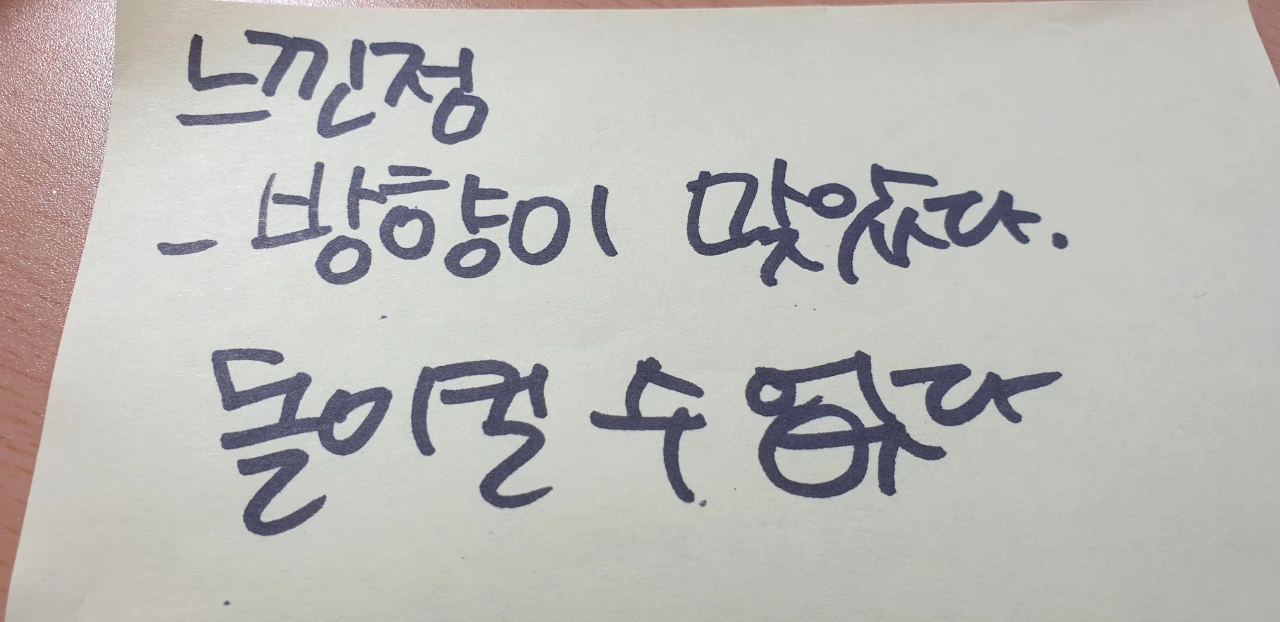 느낀정
- 방향이 맞았다.
돌이킬 수 없다